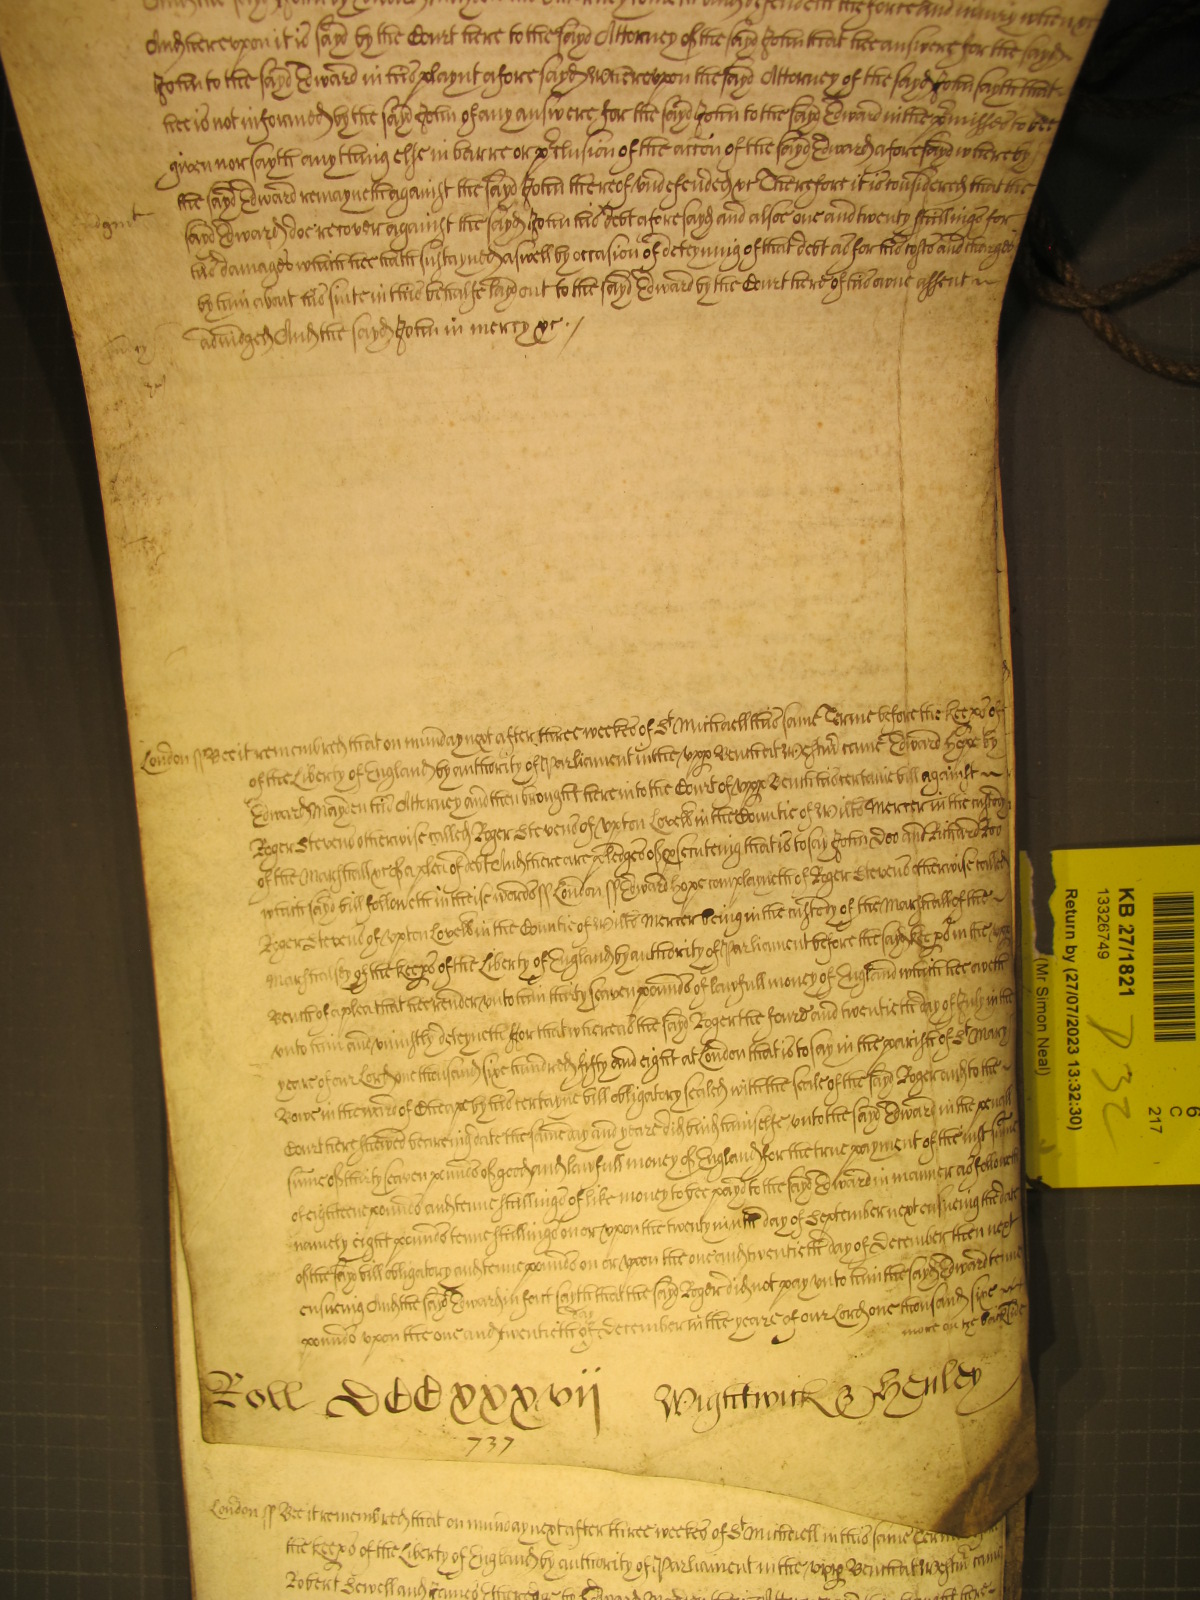 And hereupon it is sayd by the Court here to the sayd Attorney of the sayd John that hee answere for the sayd
John to the sayd Edward in this playnt aforesayd Whereupon the sayd Attorney of the sayd John sayth that
hee is not informed by the sayd John of any answere for the sayd John to the sayd Edward in the p'misses to bee
given nor sayth any thing else in barre or p'clusion of the accon of the sayd Edward aforesayd whereby
the sayd Edward remayneth against the sayd John thereof undefended &c Therefore it is considered that the
sayd Edward doe recover against the sayd John his debt aforesayd and alsoe one and twenty shillings for
his damages which hee hath susteyned aswell by occasion of deteyning of that debt as for his costs and charges
by him about his suite in this behalfe layd out to the sayd Edward by the Court here of his owne assent
adiudged And the sayd John in mercy &c
London ss Bee it remembred that on munday next after three weekes of St Michaell this same Terme before the Keep's of
of the Liberty of England by authority of Parliament in the upp' Bench at Westm' came Edward Hope by
Edward Mayden his Attorney and then brought here into the Court of upp' Bench his certaine bill against
Roger Stevens otherwise called Roger Stevens of Upton Lovell in the Countie of Wilts Mercer in the custody
of the Marshall &c of a plea of debt And there are pledges of prosecuteing that is to say John Doo and Richard Roo
which sayd bill followeth in theise words ss London ss Edward Hope complayneth of Roger Stevens otherwise called
Roger Stevens of Upton Lovell in the Countie of Wilts Mercer being in the custody of the Marshall of the
Marshalsey of the Keep's of the Liberty of England by authority of Parliament before the sayd Keep's in the upp'
Bench of a plea that hee render unto him thirty seaven pounds of lawfull money of England which hee oweth
unto him and uniustly deteyneth For that whereas the sayd Roger the fower and twentieth day of July in the
yeare of our Lord one thousand six hundred fifty and eight at London that is to say in the parish of St Mary
Bowe in the ward of Cheape by his certayne bill obligatory sealed with the seale of the sayd Roger and to the
Court here shewed beareing date the same day and yeare did bind himselfe unto the sayd Edward in the penall
sume of thirty seaven pounds of good and lawfull money of England for the true payment of the iust sume
of eighteene pounds and tenne shillings of like money to bee payd to the sayd Edward in manner as followeth
namely eight pounds tenne shillings on or upon the twenty ninth day of September next ensueing the date
of the sayd bill obligatory and tenne pounds on or upon the one and twentieth day of December then next
ensueing And the sayd Edward in fact sayth that the sayd Roger did not pay unto him the sayd Edward tenne
pounds upon the one and twentieth day of December in the yeare of our Lord one thousand six
more on the backside
Roll DCCxxxvij Wightwick & Henley
737
London ss Bee it remembred that on munday next after three weekes of St Michaell in this same Terme
the Keep's of the Liberty of England by authority of Parliament in the upp' Bench at Westm' came
Robert Sewell and James
KB 27/1821
13326749
Return by (27/07/2023 13:32:30)
(Mr Simon Neal)
C
217